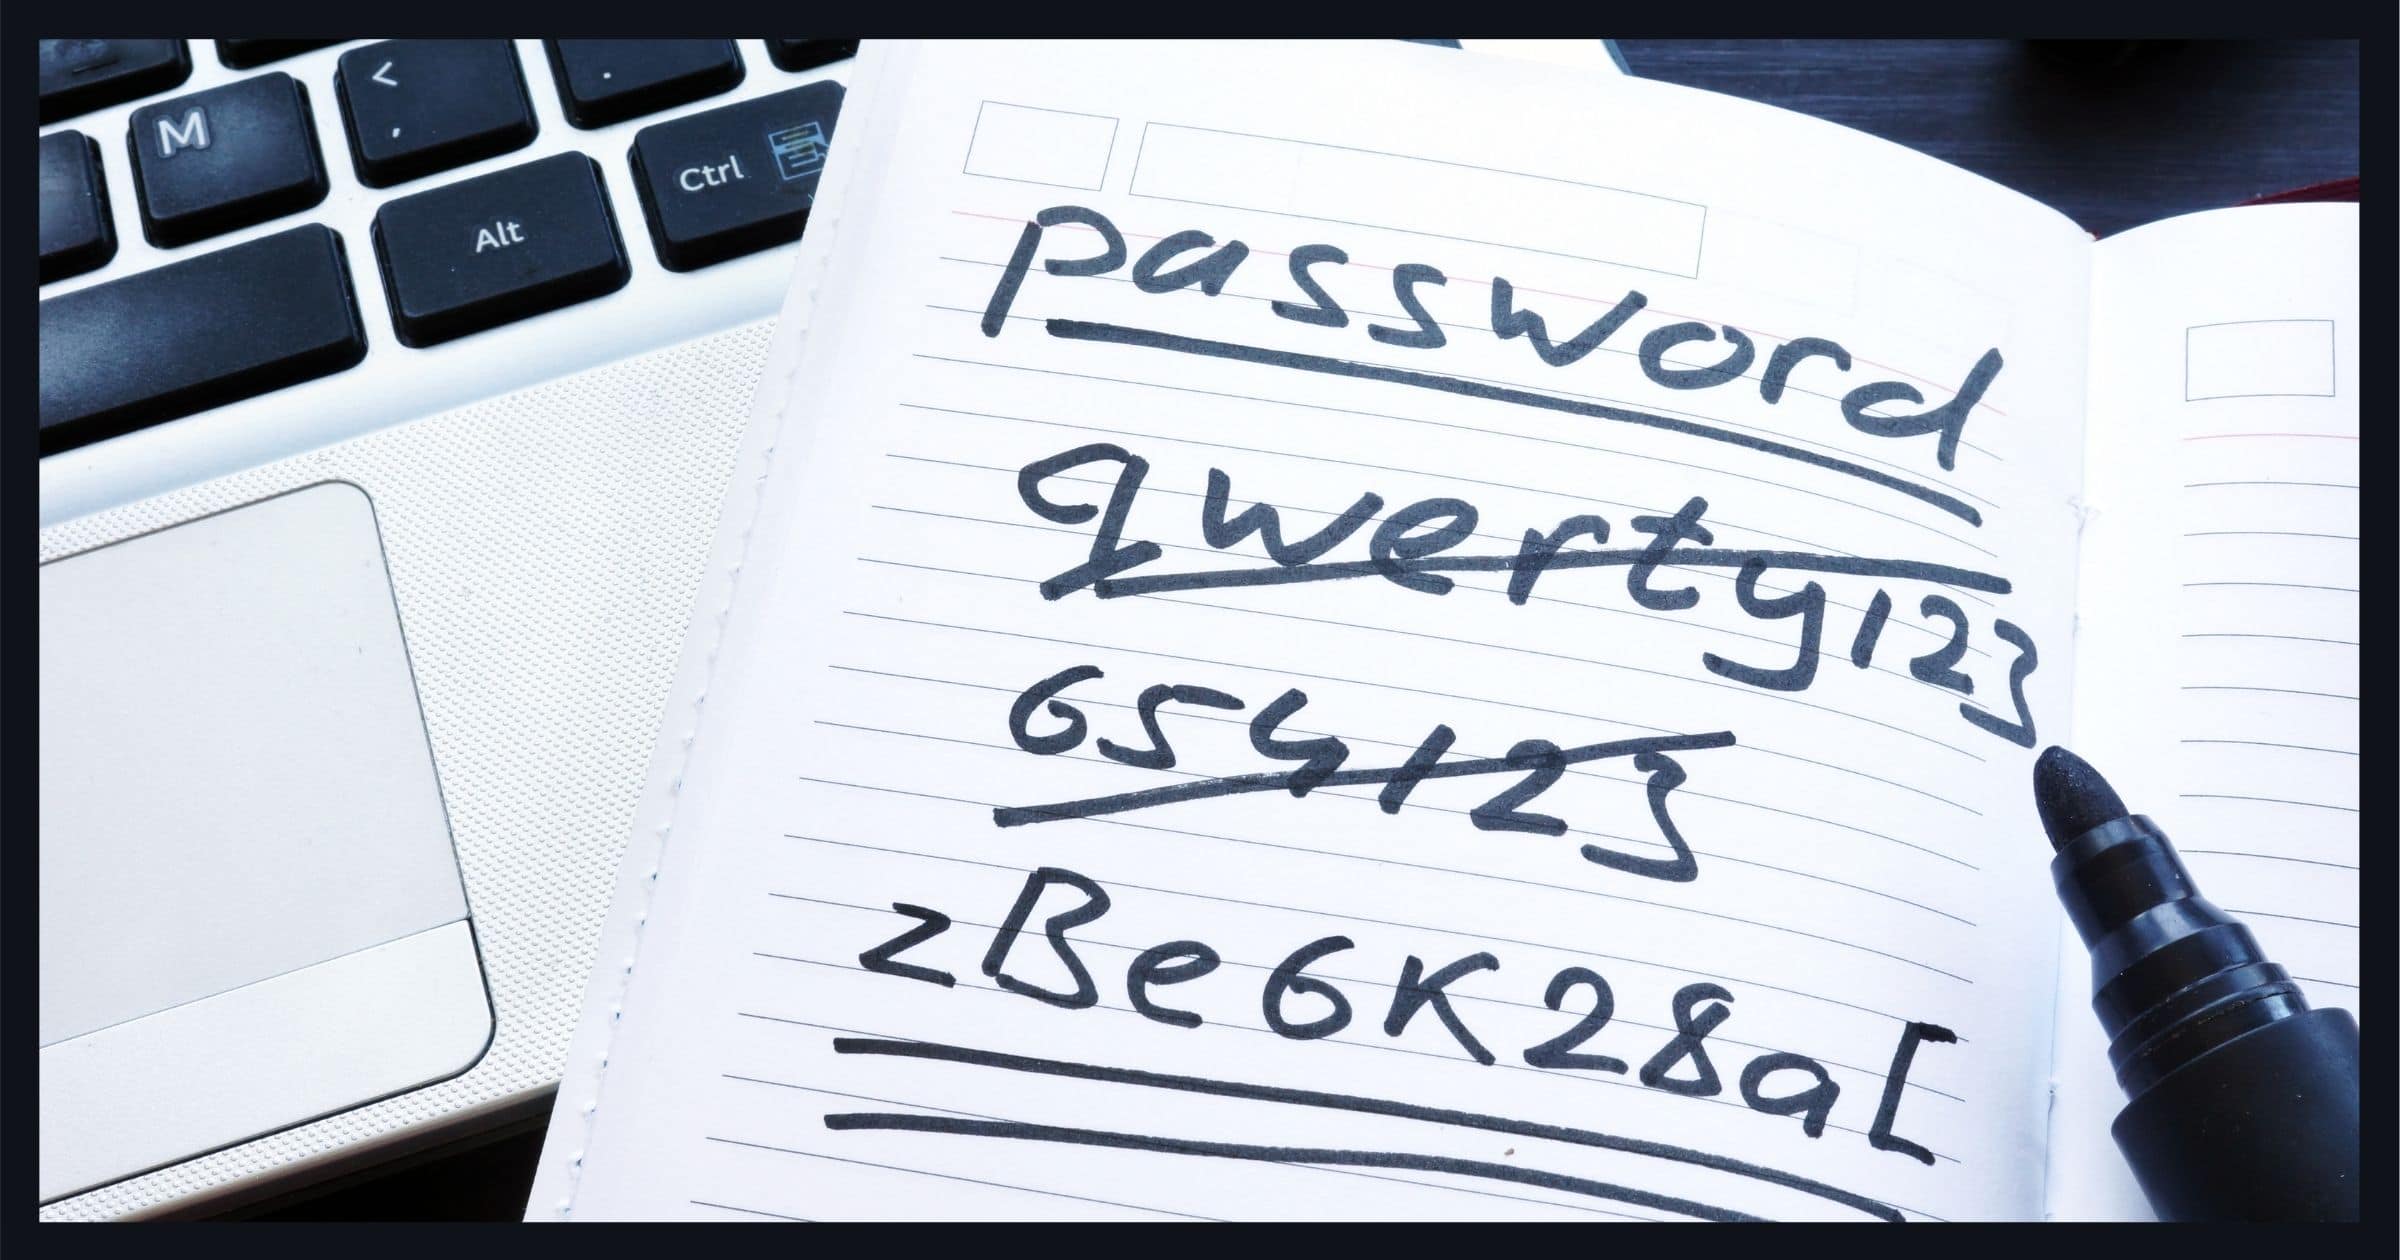 M
<
,
.
Alt
Ctrl
password
qwerty123
654123
zBe6K28a[